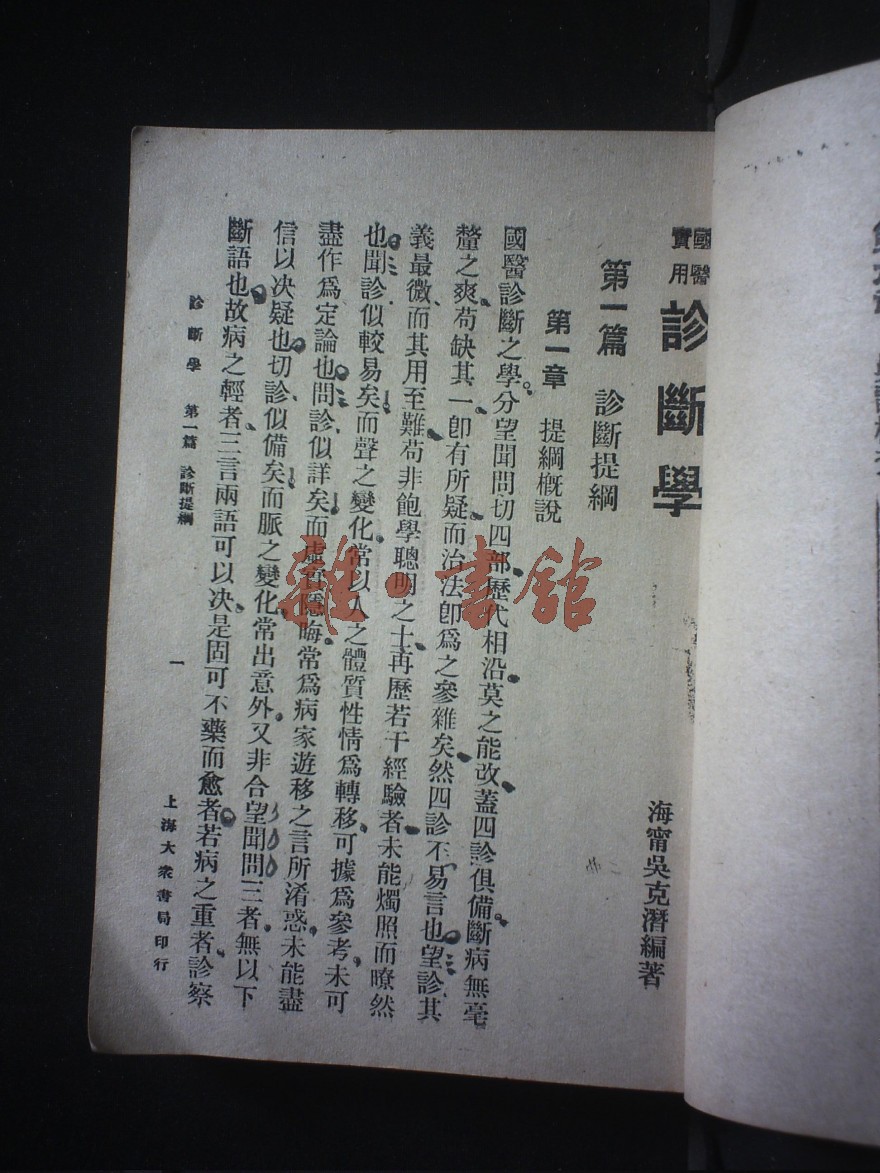 國醫實用 診斷學
海甯吳克潛編著
第一篇 診斷提綱
第一章 提綱概說
國醫診斷之學。分望聞問切四部、歷代相沿、莫之能改、蓋四診俱備。斷病無毫
釐之爽、苟缺其一、卽有所疑、而治法卽爲之參雜矣、然四診不易言也、望診、其
義最微、而其用至難、苟非飽學聰明之士、再歷若干經驗者、未能燭照而瞭然
也、聞診似較易矣、而聲之變化、常以人之體質性情爲轉移、可據爲參考、未可
盡作爲定論也、問診似詳矣、而虛實隱晦、常爲病家遊移之言所淆惑、未能盡
信以决疑也、切診似備矣、而脈之變化、常出意外、又非合望聞問三者、無以下
斷語也、故病之輕者、三言兩語可以决、是固可不藥而愈者、若病之重者、診察
診斷學 第一篇 診斷提綱
一
上海大衆書局印行
雜·書館